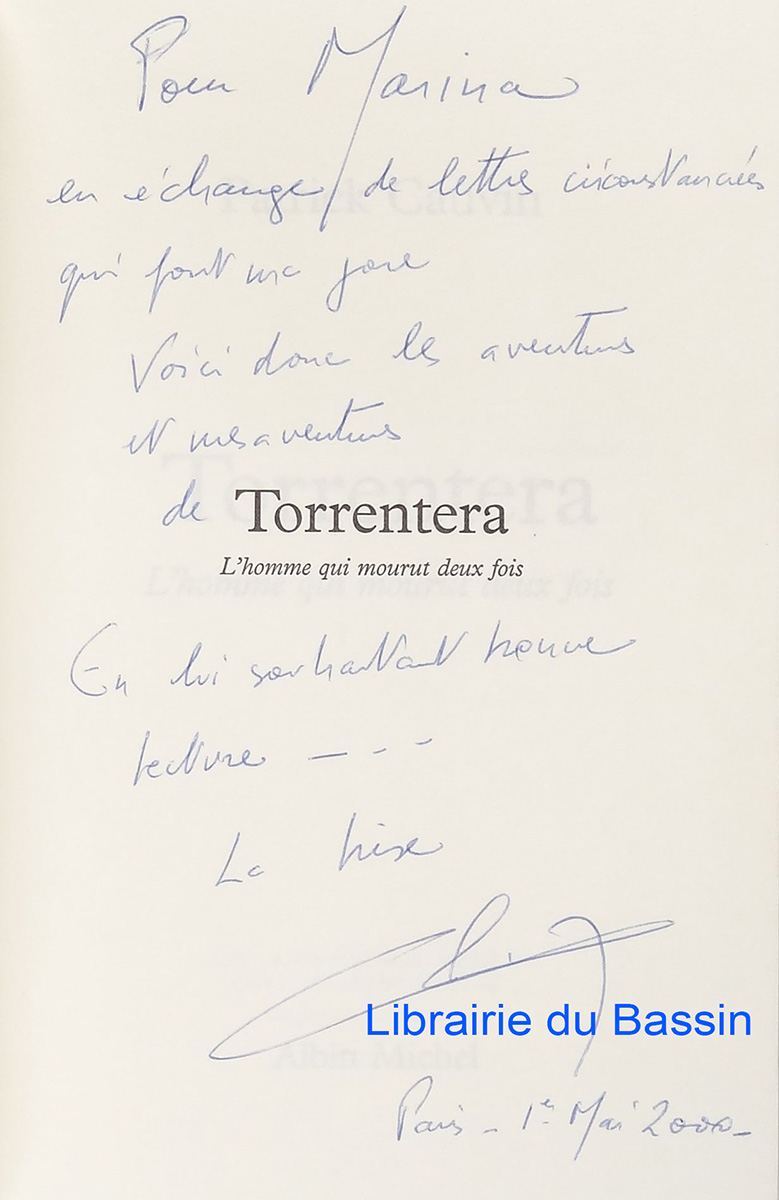 Pour Marina
en échange de lettres circonstanciées
qui font ma joie
Patrick Cauvin
Voici donc les aventures
et mesaventures
de Torrentera
L'homme qui mourut deux fois
En lui souhaitant bonne
lecture — - -
La bise
Librairie du Bassin
Albin Michel
Paris - 1er Mai 2000 -